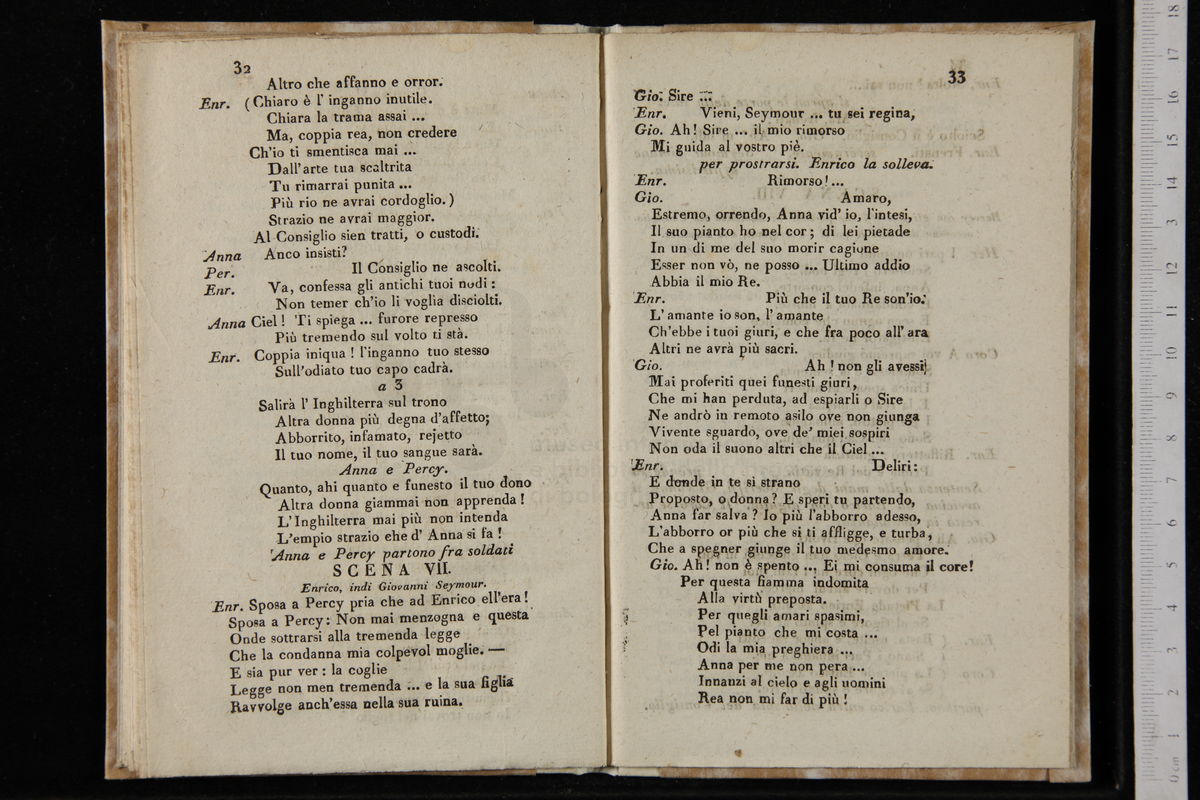 32
Altro che affanno e orror.
Enr. (Chiaro è l' inganno inutile.
Chiara la trama assai ...
Ma, coppia rea, non credere
Ch'io ti smentisca mai ...
Dall'arte tua scaltrita
Tu rimarrai punita ...
Più rio ne avrai cordoglio.)
Strazio ne avrai maggior.
Al Consiglio sien tratti, o custodi.
Anna Anco insisti?
Per. Il Consiglio ne ascolti.
Enr. Va, confessa gli antichi tuoi nodi:
Non temer ch'io li voglia disciolti.
Anna Ciel! Ti spiega ... furore represso
Più tremendo sul volto ti stà.
Enr. Coppia iniqua! l'inganno tuo stesso
Sull'odiato tuo capo cadrà.
a 3
Salirà l' Inghilterra sul trono
Altra donna più degna d'affetto;
Abborrito, infamato, rejetto
Il tuo nome, il tuo sangue sarà.
Anna e Percy.
Quanto, ahi quanto e funesto il tuo dono
Altra donna giammai non apprenda!
L'Inghilterra mai più non intenda
L'empio strazio che d' Anna si fa!
Anna e Percy partono fra soldati
SCENA VII.
Enrico, indi Giovanni Seymour.
Enr. Sposa a Percy pria che ad Enrico ell'era!
Sposa a Percy: Non mai menzogna e questa
Onde sottrarsi alla tremenda legge
Che la condanna mia colpevol moglie. —
E sia pur ver: la coglie
Legge non men tremenda ... e la sua figlia
Ravvolge anch'essa nella sua ruina.
33
Gio. Sire ...
Enr. Vieni, Seymour ... tu sei regina,
Gio. Ah! Sire ... il mio rimorso
Mi guida al vostro piè.
per prostrarsi. Enrico la solleva.
Enr. Rimorso!...
Gio. Amaro,
Estremo, orrendo, Anna vid' io, l'intesi,
Il suo pianto ho nel cor; di lei pietade
In un di me del suo morir cagione
Esser non vò, ne posso ... Ultimo addio
Abbia il mio Re.
Enr. Più che il tuo Re son'io.
L' amante io son, l' amante
Ch'ebbe i tuoi giuri, e che fra poco all' ara
Altri ne avrà più sacri.
Gio. Ah! non gli avessi
Mai proferiti quei funesti giuri,
Che mi han perduta, ad espiarli o Sire
Ne andrò in remoto asilo ove non giunga
Vivente sguardo, ove de' miei sospiri
Non oda il suono altri che il Ciel ...
Enr. Deliri:
E donde in te si strano
Proposto, o donna? E speri tu partendo,
Anna far salva? Io più l'abborro adesso,
L'abborro or più che si ti affligge, e turba,
Che a spegner giunge il tuo medesmo amore.
Gio. Ah! non è spento ... Ei mi consuma il core!
Per questa fiamma indomita
Alla virtù preposta.
Per quegli amari spasimi,
Pel pianto che mi costa ...
Odi la mia preghiera ...
Anna per me non pera ...
Innanzi al cielo e agli uomini
Rea non mi far di più!